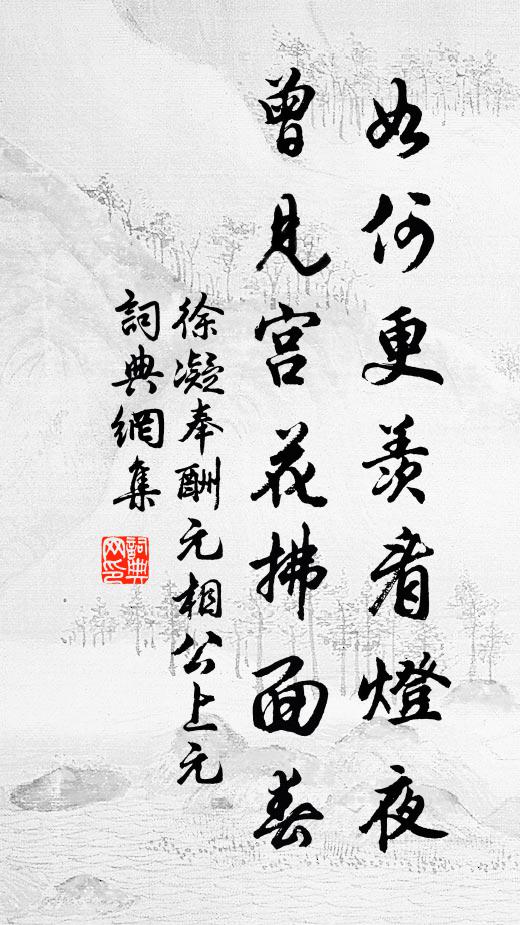 如何更羨看燈夜
曾見宮花拂面春
徐凝奉酬元相公上元
詞典網集
詞典网印